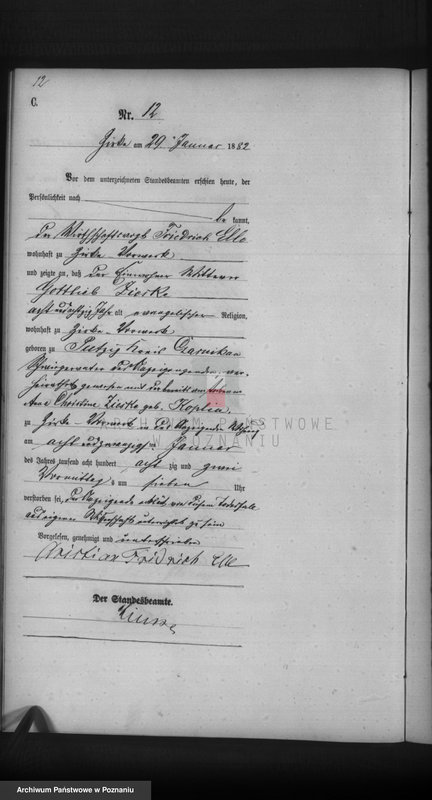 12
C.
Nr. 12
Zirke am 29 Januar 1882
Vor dem unterzeichneten Standesbeamten erschien heute, der
Persönlichkeit nach
be kannt,
der Wirthschaftsvogt Friedrich
wohnhaft zu Zirke Vorwerk
und zeigte an, daß der Einwohner Wittwer
Gottlieb Zieske
acht und achtzig Jahr alt evangelischer Religion,
wohnhaft zu Zirke-Vorwerk
geboren zu Putzig Kreis Czarnikau
Schwiegervater des Anzeigenden, ver-
heirathet gewesen mit der bereits
Anna Christine Zieske geb. Koplin,
zu Zirke-Vorwerk in des Anzeigenden Wohnung
am acht und zwanzigsten Januar
des Jahres tausend acht hundert acht zig und zwei
Vormittags um sieben Uhr
verstorben sei, der Anzeigende erklärt, von diesem Todesfalle
aus eigener Wissenschaft unterrichtet zu sein
Vorgelesen, genehmigt und unterschrieben
Christian Friedrich
Der Standesbeamte.
ARCHIWUM PAŃSTWOWE
W POZNANIU
Archiwum Państwowe w Poznaniu